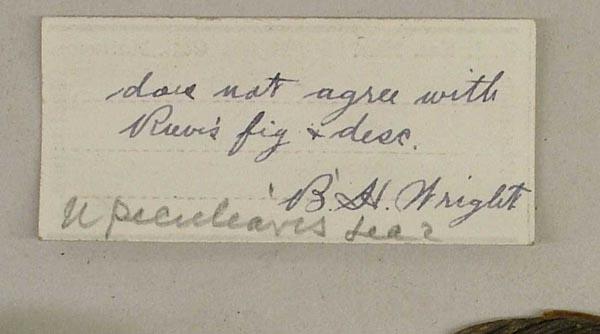 does not agree with
Reeve's fig & desc.
B. H. Wright
U peculiaris Lea?